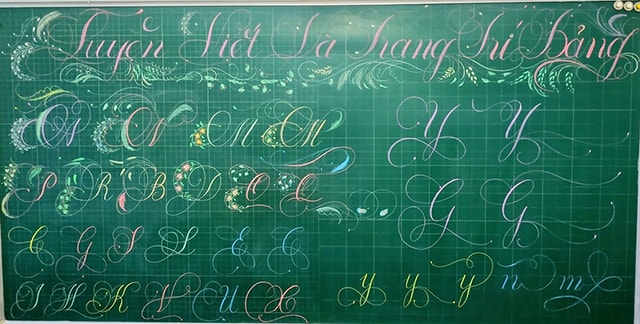 Luyện Viết Và Trang Trí Bảng
A N M M Y Y
P R B D Q C G G
C G S S E C
I H K V U X y y y n m